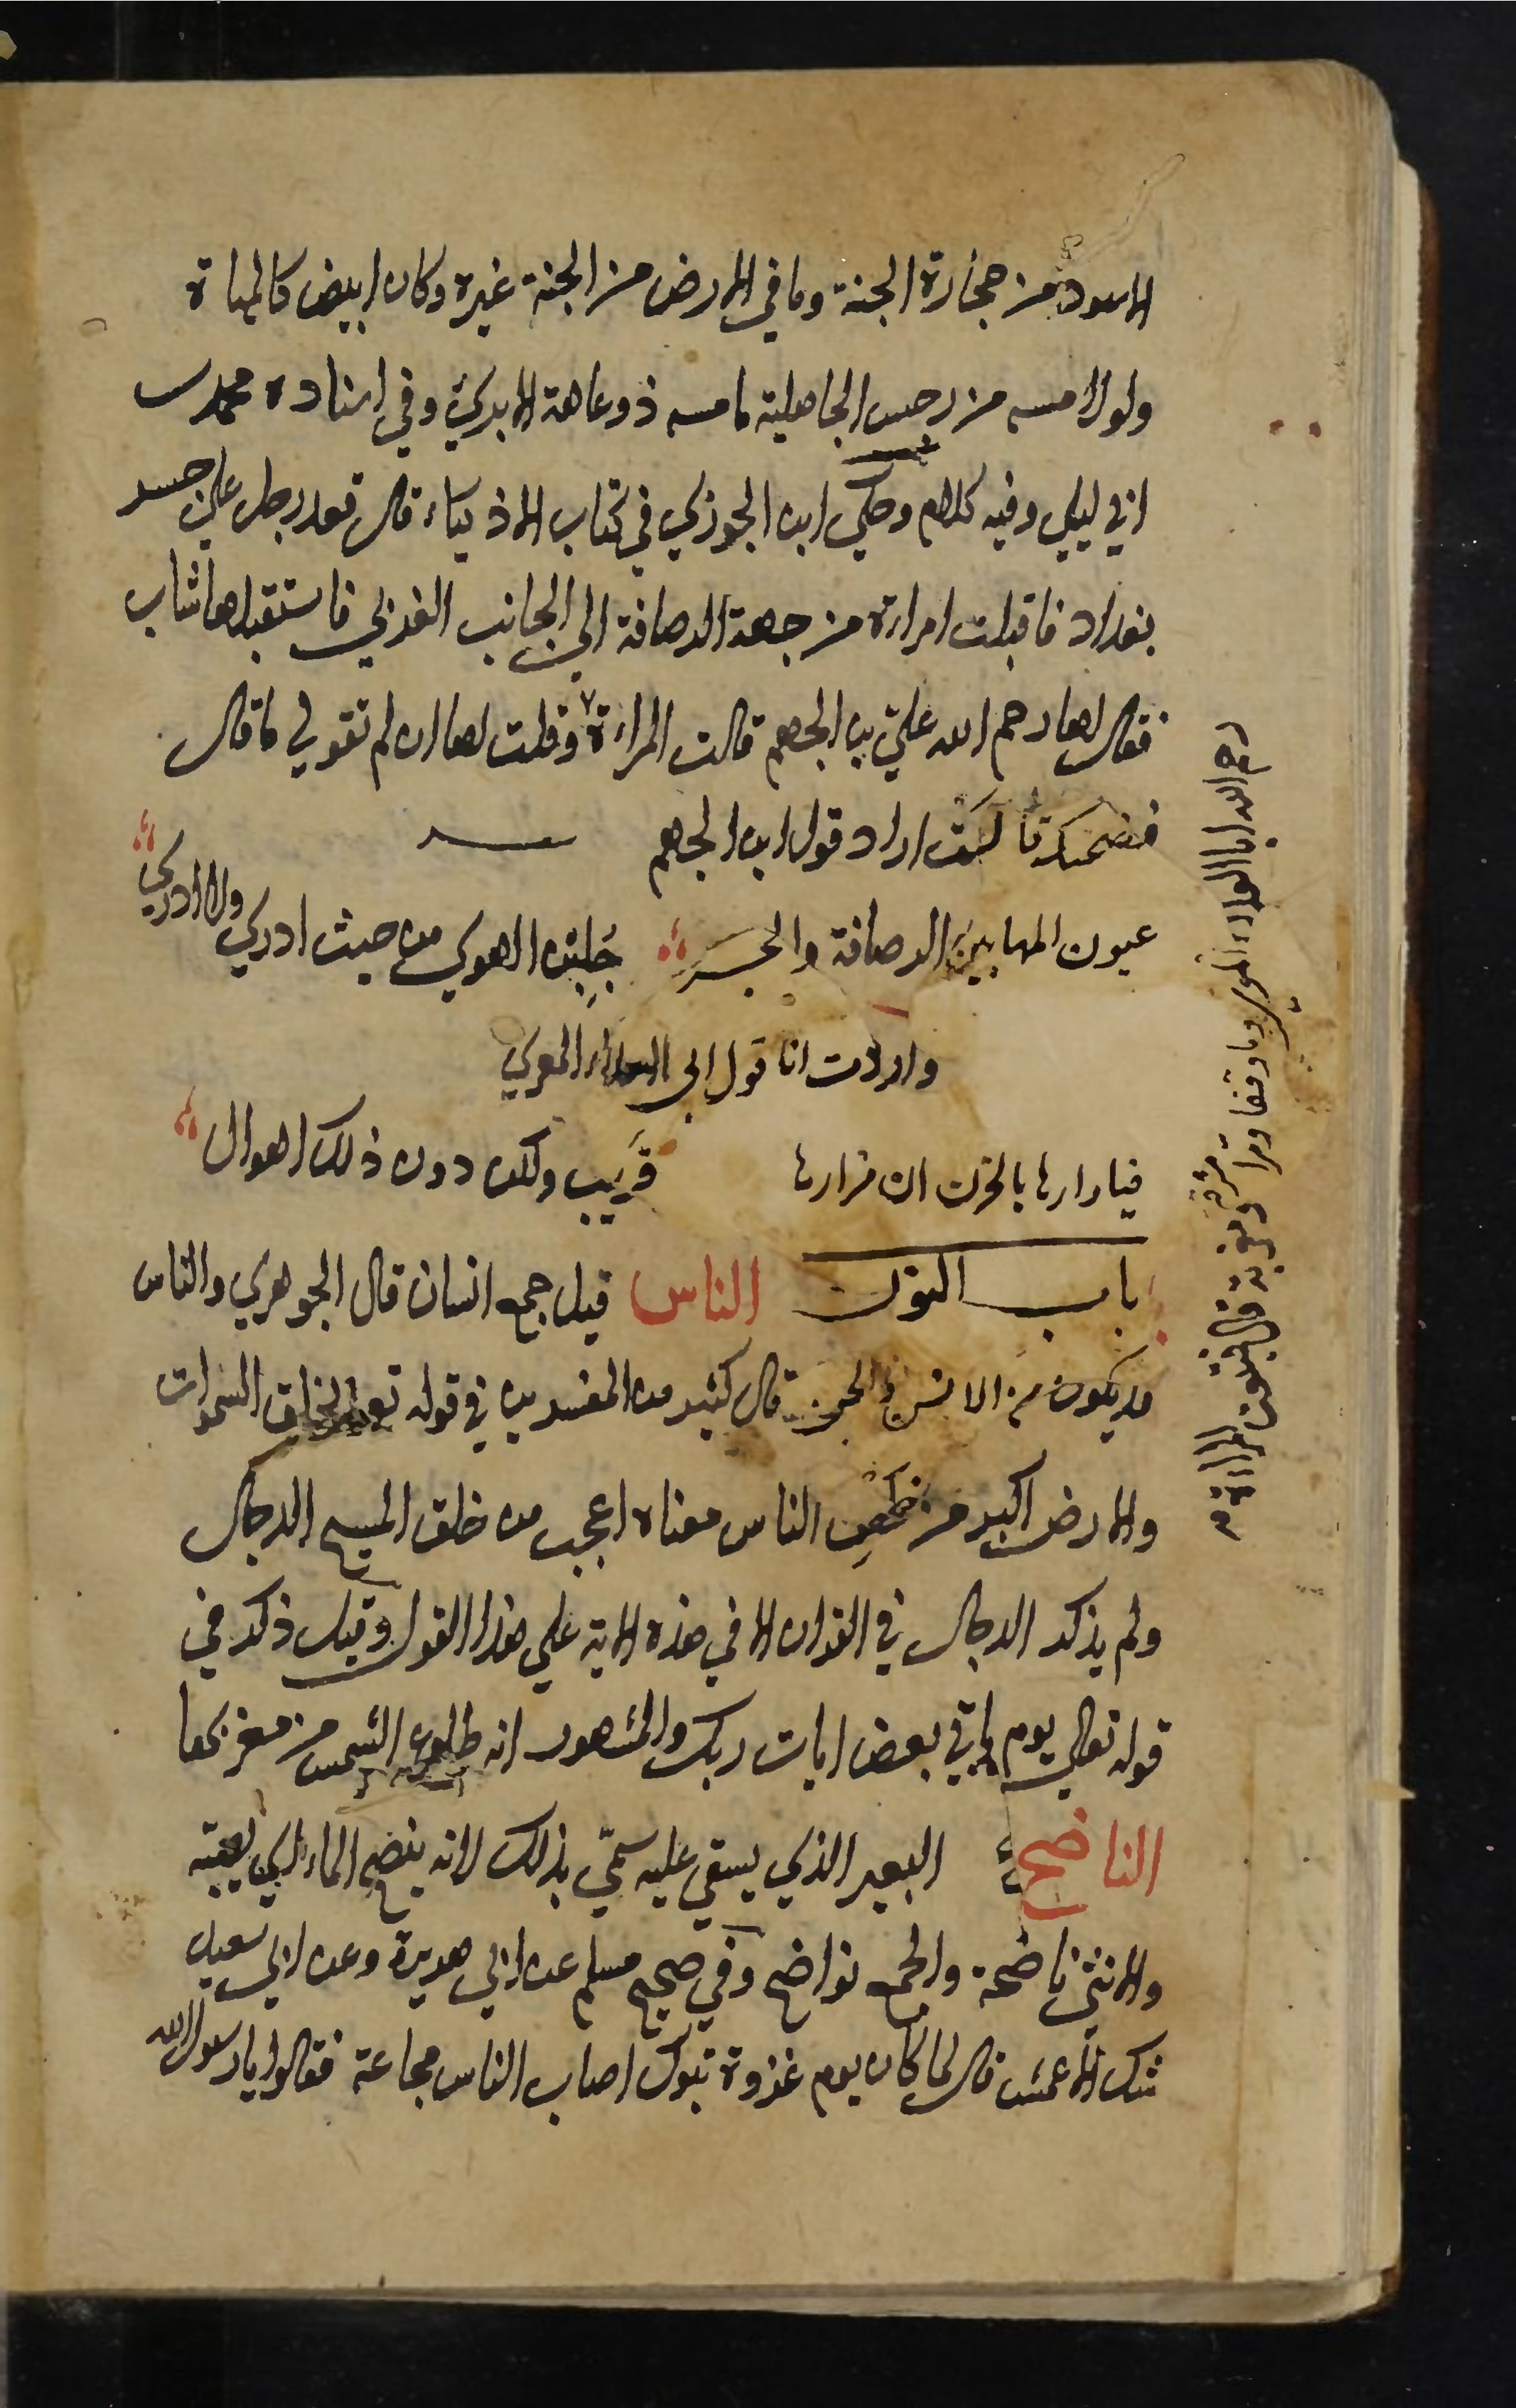 الاسود من حجارة الجنة وما في الارض من الجنة غيره وكان ابيض كالمهاة
ولولا مسه من رجس الجاهلية ما مسه ذو عاهة الا برئ وفي اسناده محمد بن
ابي ليلي وفيه كلام وحكي ابن الجوزي في كتاب الاذكياء قال قعد رجل علي جسر
بغداد فاقبلت امراءة من جهة الرصافة الي الجانب الغربي فاستقبلها شاب
فقال لها رحم الله علي بن الجهم قالت المراءة وقلت لها ان لم تقولي ما قال
فضحكت قالت اراد قول ابن الجهم
عيون المها بين الرصافة والجسر جلبن الهوي من حيث ادري ولا ادري
واردت انا قول ابي العلاء المعري
فيا دارها بالحزن ان مزارها قريب ولكن دون ذلك اهوال
باب النون الناس قيل جمع انسان قال الجوهري والناس
قد يكون من الانس والجن قال كثير من المفسرين في قوله تعالي لخلق السموات
والارض اكبر من خلق الناس معناه اعجب من خلق المسيح الدجال
ولم يذكر الدجال في القران الا في هذه الاية علي هذا القول وقيل ذكر في
قوله تعالي يوم ياتي بعض ايات ربك والمشهور انه طلوع الشمس من مغربها
الناضح البعير الذي يستقي عليه سمّي بذلك لانه ينضح الماء اي يصبه
والانثي ناضحة والجمع نواضح وفي صحيح مسلم عن ابي هريرة وعن ابي سعيد
شك الاعمش قال لما كان يوم غزوة تبوك اصاب الناس مجاعة فقالوا يا رسول الله
رحم الله ابا العلاء المعري وما وقفا ومرا مشرقة ومغربة قال فتبعت المراءة